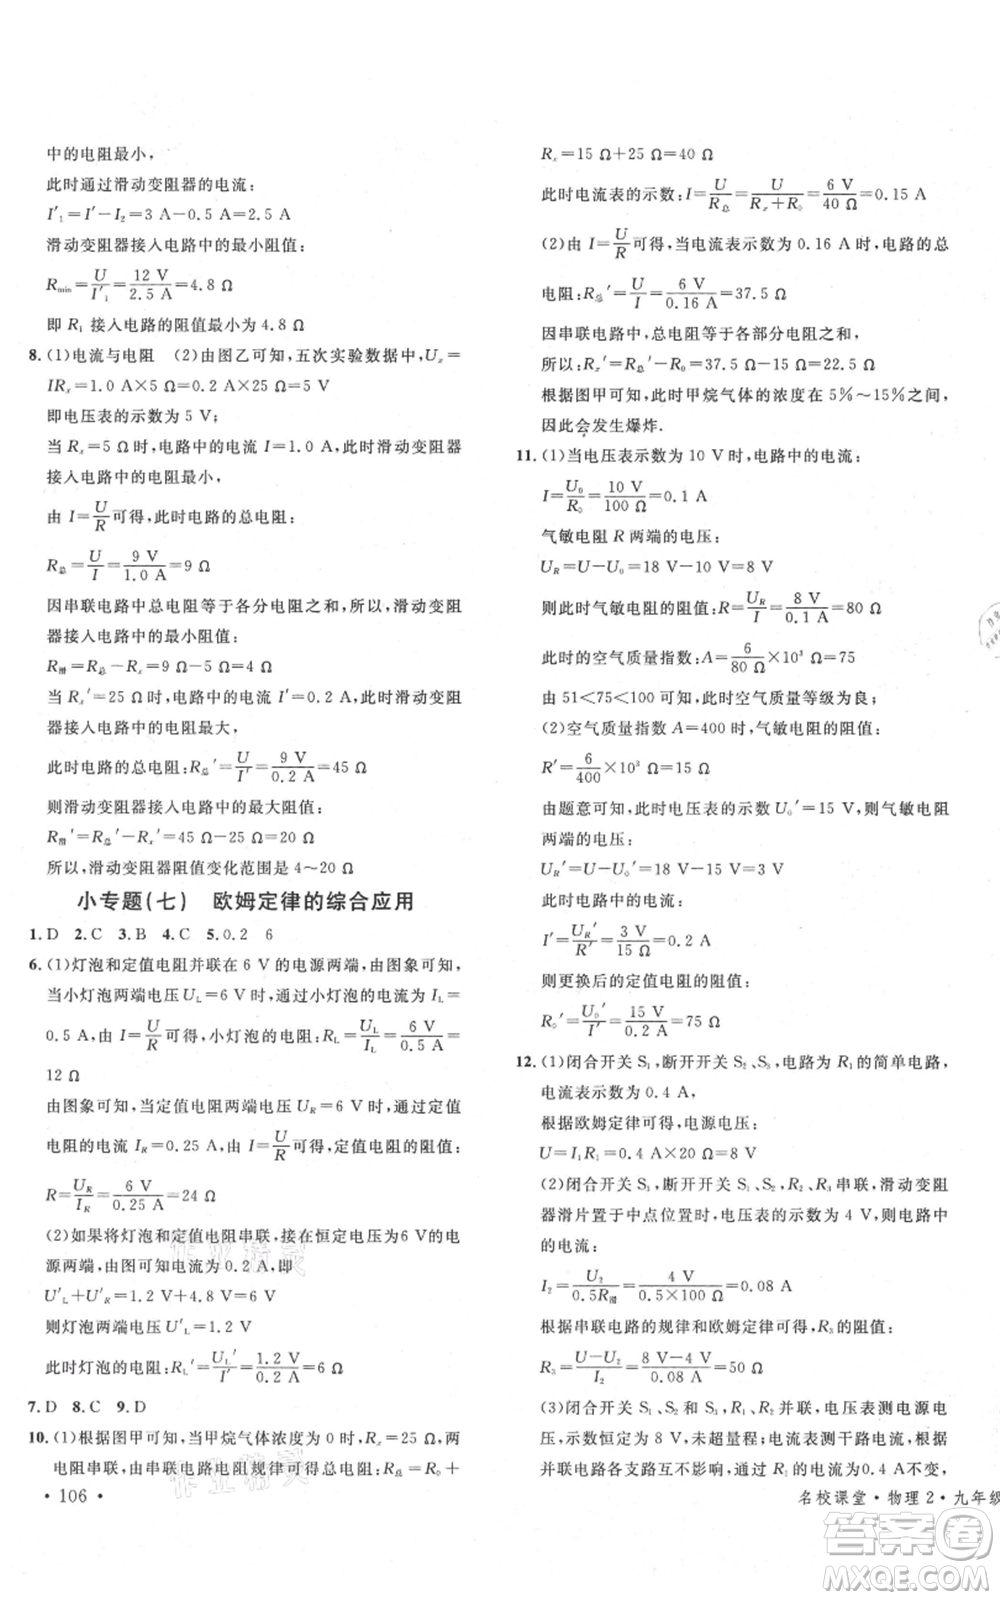 中的电阻最小,
此时通过滑动变阻器的电流:
I′₁=I′−I₂=3 A−0.5 A=2.5 A
滑动变阻器接入电路中的最小阻值:
Rmin=U/I′₁=12 V/2.5 A=4.8 Ω
即 R₁ 接入电路的阻值最小为 4.8 Ω
8. (1)电流与电阻 (2)由图乙可知,五次实验数据中,Uₓ=
IRₓ=1.0 A×5 Ω=0.2 A×25 Ω=5 V
即电压表的示数为 5 V;
当 Rₓ=5 Ω时,电路中的电流 I=1.0 A,此时滑动变阻器
接入电路中的电阻最小,
由 I=U/R可得,此时电路的总电阻:
R总=U/I=9 V/1.0 A=9 Ω
因串联电路中总电阻等于各分电阻之和,所以,滑动变阻
器接入电路中的最小阻值:
R滑=R总−Rₓ=9 Ω−5 Ω=4 Ω
当 Rₓ′=25 Ω时,电路中的电流 I′=0.2 A,此时滑动变阻
器接入电路中的电阻最大,
此时电路的总电阻:R总′=U/I′=9 V/0.2 A=45 Ω
则滑动变阻器接入电路中的最大阻值:
R滑′=R总′−Rₓ′=45 Ω−25 Ω=20 Ω
所以,滑动变阻器阻值变化范围是 4～20 Ω
小专题(七) 欧姆定律的综合应用
1. D 2. C 3. B 4. C 5. 0.2 6
6. (1)灯泡和定值电阻并联在 6 V 的电源两端,由图象可知,
当小灯泡两端电压 UL=6 V 时,通过小灯泡的电流为 IL=
0.5 A,由 I=U/R可得,小灯泡的电阻:RL=UL/IL=6 V/0.5 A=
12 Ω
由图象可知,当定值电阻两端电压 UR=6 V 时,通过定值
电阻的电流 IR=0.25 A,由 I=U/R可得,定值电阻的阻值:
R=UR/IR=6 V/0.25 A=24 Ω
(2)如果将灯泡与定值电阻串联,接在恒定电压为6 V的电
源两端,由图象可知电流为 0.2 A,即
U′L+U′R=1.2 V+4.8 V=6 V
则灯泡两端电压 U′L=1.2 V
此时灯泡的电阻:RL′=UL′/I′=1.2 V/0.2 A=6 Ω
7. D 8. C 9. D
10. (1)根据图甲可知,当甲烷气体浓度为 0 时,Rₓ=25 Ω,两
电阻串联,由串联电路电阻规律可得总电阻:R总=R₀+
• 106 •
Rₓ=15 Ω+25 Ω=40 Ω
此时电流表的示数:I=U/R总=U/(Rₓ+R₀)=6 V/40 Ω=0.15 A
(2)由 I=U/R可得,当电流表示数为 0.16 A 时,电路的总
电阻:R总′=U/I=6 V/0.16 A=37.5 Ω
因串联电路中,总电阻等于各部分电阻之和,
所以:Rₓ′=R总′−R₀=37.5 Ω−15 Ω=22.5 Ω
根据图甲可知,此时甲烷气体的浓度在 5%～15%之间,
因此会发生爆炸.
11. (1)当电压表示数为 10 V 时,电路中的电流:
I=U₀/R₀=10 V/100 Ω=0.1 A
气敏电阻 R 两端的电压:
UR=U−U₀=18 V−10 V=8 V
则此时气敏电阻的阻值:R=UR/I=8 V/0.1 A=80 Ω
此时的空气质量指数:A=6/80 Ω×10³ Ω=75
由 51<75<100 可知,此时空气质量等级为良;
(2)空气质量指数 A=400 时,气敏电阻的阻值:
R′=6/400×10³ Ω=15 Ω
由题意可知,此时电压表的示数 U₀′=15 V,则气敏电阻
两端的电压:
UR′=U−U₀′=18 V−15 V=3 V
此时电路中的电流:
I′=UR′/R′=3 V/15 Ω=0.2 A
则更换后的定值电阻的阻值:
R₀′=U₀′/I′=15 V/0.2 A=75 Ω
12. (1)闭合开关 S₁,断开开关 S₂、S₃,电路为 R₁的简单电路,
电流表示数为 0.4 A,
根据欧姆定律可得,电源电压:
U=I₁R₁=0.4 A×20 Ω=8 V
(2)闭合开关 S₃,断开开关 S₁、S₂,R₂、R₃ 串联,滑动变阻
器滑片置于中点位置时,电压表的示数为 4 V,此时电路
的电流:
I₂=U₂/0.5R滑=4 V/0.5×100 Ω=0.08 A
根据串联电路的规律和欧姆定律可得,R₃的阻值:
R₃=(U−U₂)/I₂=(8 V−4 V)/0.08 A=50 Ω
(3)闭合开关 S₁、S₂,断开 S₃,R₁、R₂ 并联,电压表测电源电
压,示数恒定为 8 V,没有超量程;电流表测干路电流,因
并联电路各支路互不影响,通过 R₁ 的电流 0.4 A不变,
名校课堂 • 物理 2 • 九年级
作业精灵
作业精灵
答案卷
MXQE.COM